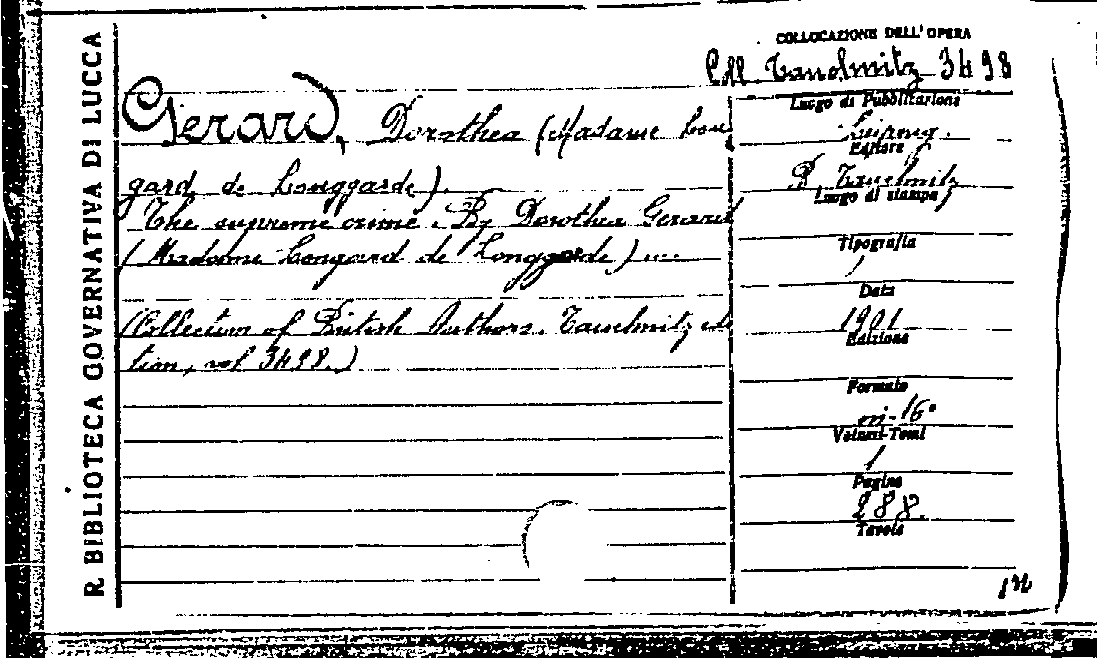 R. BIBLIOTECA GOVERNATIVA DI LUCCA
Gerard, Dorothea (Madame Lon
gard de Longgarde).
The supreme crime. By Dorothea Gerard
(Madame Longard de Longgarde)
(Collection of British Authors. Tauchnitz edi
tion, vol 3498.)
COLLOCAZIONE DELL'OPERA
Coll. Tauchnitz 3498
Luogo di Pubblicazione
Leipzig.
Editore
B Tauchnitz
Luogo di stampa
Tipografia
/
Data
1901
Edizione
Formato
in-16°
Volumi-Tomi
1
Pagine
288.
Tavole